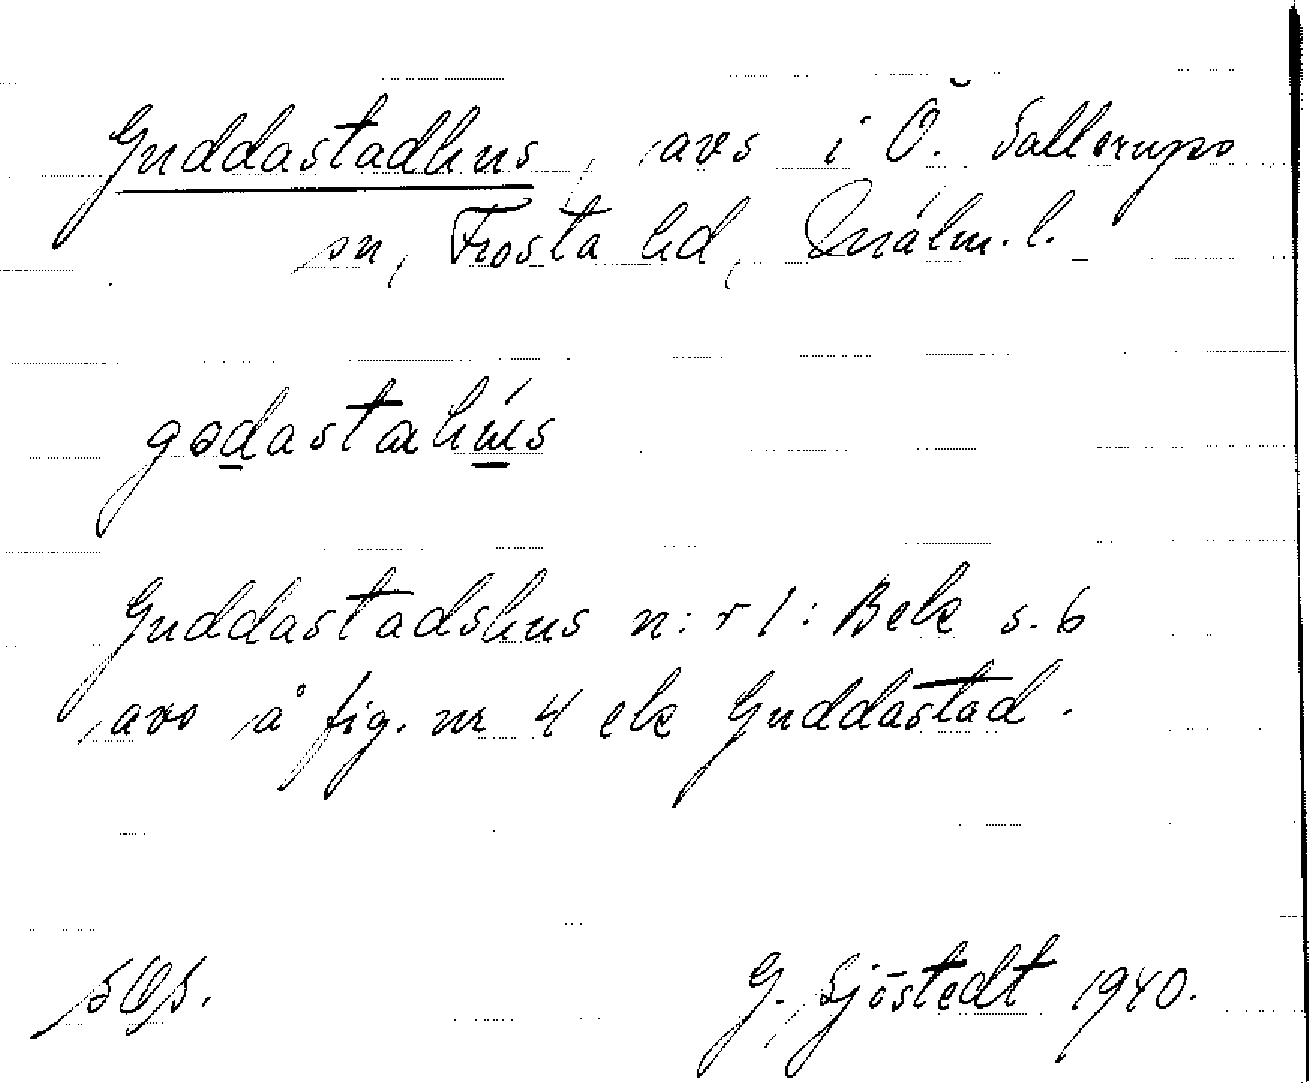 Guddastadhus, avs i Ö. Sallerups
sn, Frosta hd, Malm. l.
gɷdastahus
Guddastadshus n:r 1: Bek s. 6
avs å fig. nr 4 ek Guddastad.
G. Sjöstedt 1940.